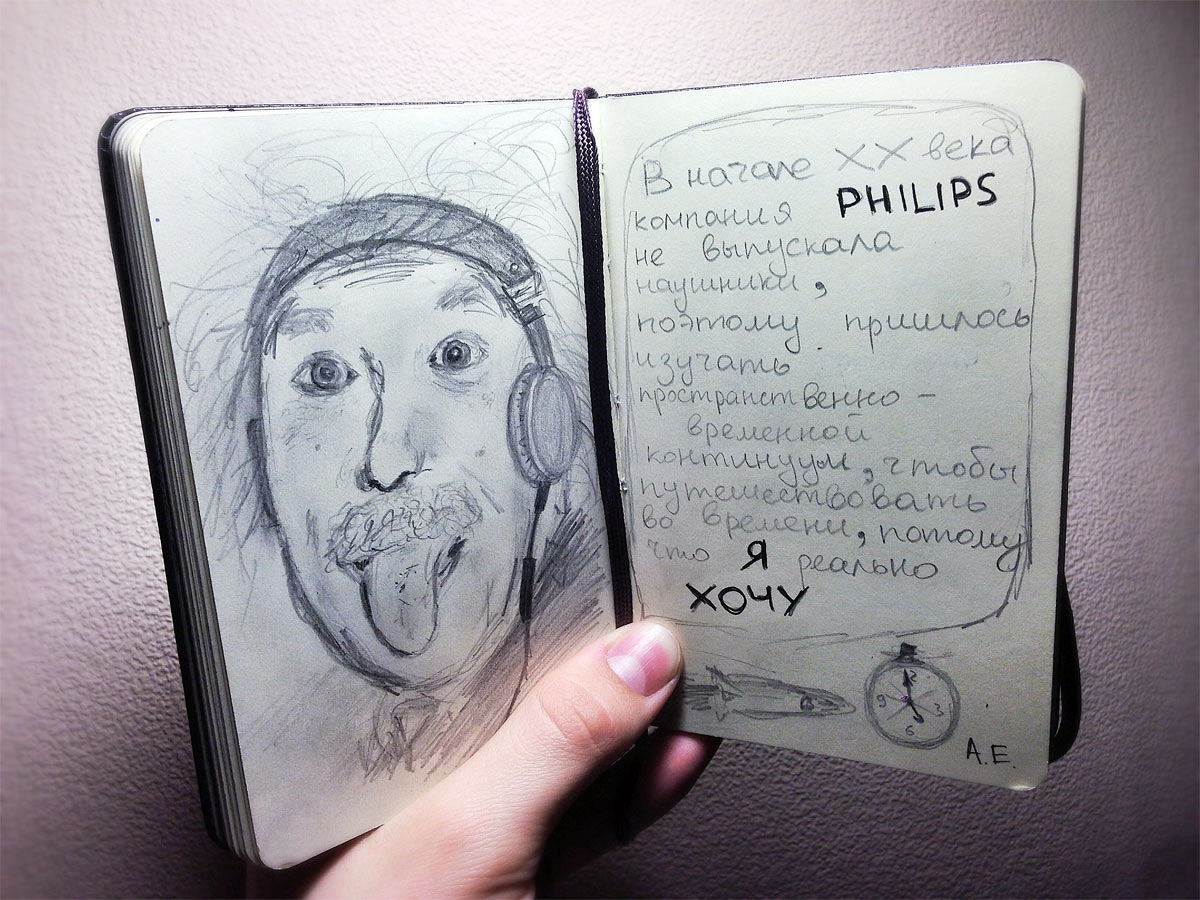 В начале XX века
компания PHILIPS
не выпускала
наушники,
поэтому пришлось
изучать
пространственно-
временной
континуум, чтобы
путешествовать
во времени, потому
что Я реально
ХОЧУ
12
9 3
6
A.E.